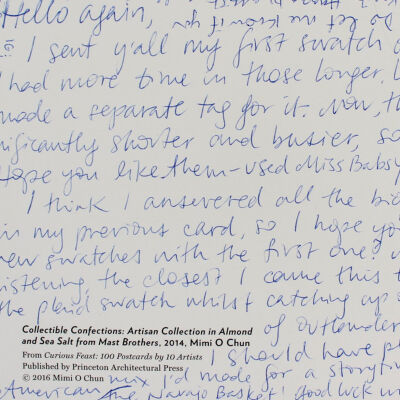 Hello again,
Do let me know if you
I sent y'all my first swatch
had more time in those longer.
made a separate tag for it. Now, th
nificantly shorter and busier, so
Hope you like them - used Miss Babs
I think I answered all the
in my previous card, so I hope yo
new swatches with the first one?
istening, the closest I came this t
the plaid swatch whilst catching up o
of outlander
Collectible Confections: Artisan Collection in Almond
and Sea Salt from Mast Brothers, 2014, Mimi O Chun
From Curious Feast: 100 Postcards by 10 Artists
Published by Princeton Architectural Press
© 2016 Mimi O Chun
I should have pl
American mix I'd made for a storytim
the Navajo Basket! Good luck